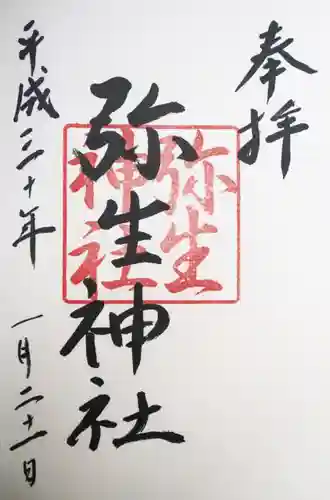 奉拝
弥生神社
弥生
神社
平成三十年
一月二十一日